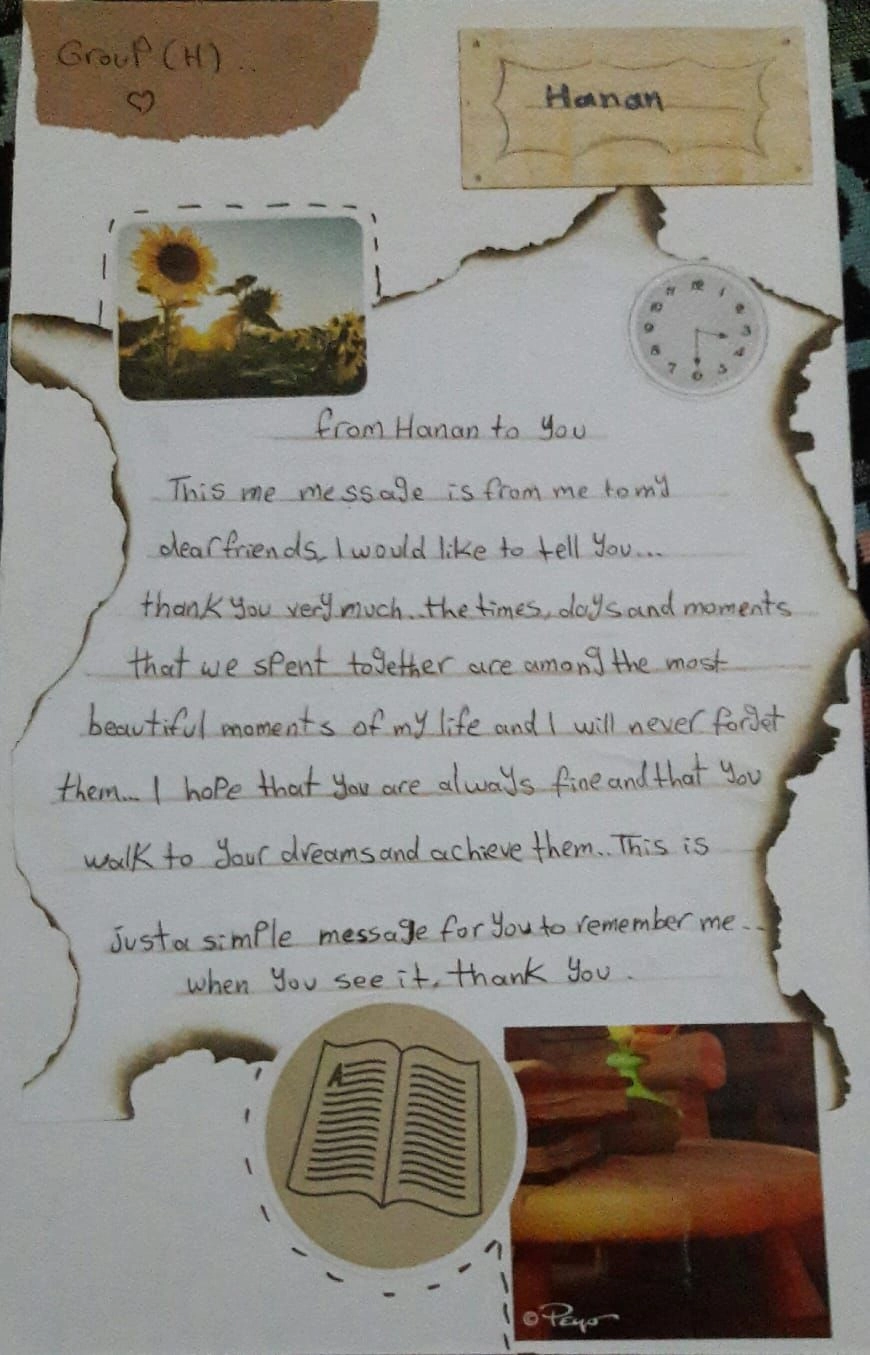 Group (H)..
Hanan
12 1 2 3 4 5 6 7 8 9 10 11
from Hanan to you
This me message is from me to my
dear friends, I would like to tell you...
thank you very much..the times, days and moments
that we spent together are among the most
beautiful moments of my life and I will never forget
them... I hope that you are always fine and that you
walk to your dreams and achieve them.. This is
just a simple message for you to remember me..
when you see it, thank you.
A
© Peyo